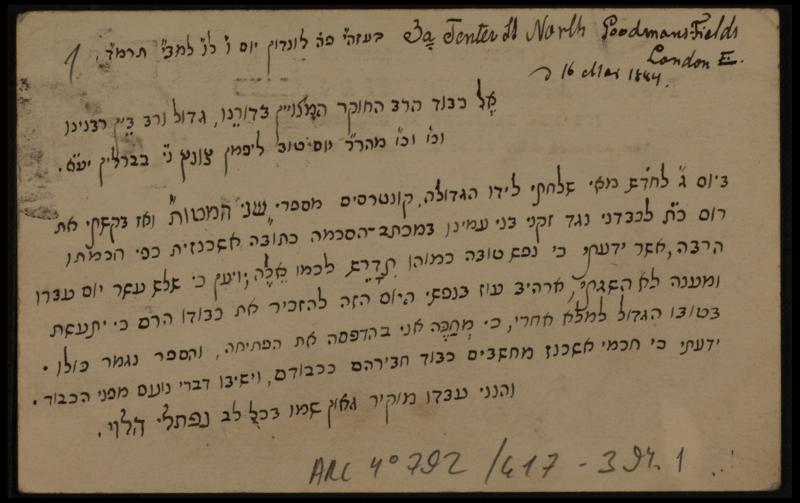 3a Tenter St North Goodmans Fields
London E.
16 Mar 1884.
בעזה״י פה לונדון יום ו׳ לנ׳ למב״י תרמ״ד,
1
אל כבוד הרב החוקר המצוין בדורנו, גדול ורב בין רבנינו
וכו׳ וכו׳ מהר״ר יום טוב ליפמן צונץ נ״י בברלין יע״א.
ביום ג׳ לחדש מאי שלחתי לידו הגדולה, קונטרסים מספרי ״שני המטות״ ואז בקשתי את
רום כ״ת לכבדני נגד זקני בני עמינו במכתב־הסכמה כתובה אשכנזית כפי חכמתו
הרבה, אשר ידעתי כי נפש טובה כמוהו תִדְרֹש לכמו אֵלֶה; ויען כי שלש עשר יום עברו
ומענה לא השגתי, ארהיב עוז בנפשי היום הזה להזכיר את כבודו הרם כי יתעשת
בטובו הגדול למלא אחרי, כי מְחַכֶּה אני בהדפסה את הפתיחה, והספר נגמר כולו.
ידעתי כי חכמי אשכנז מחשבים כבוד חביריהם ככבודם, וישיבו דברי נועם מפני הכבוד.
והנני עבדו מוקיר גאון שמו בכל לב נפתלי הלוי.
ARC 4° 792 /G17 - 394.1